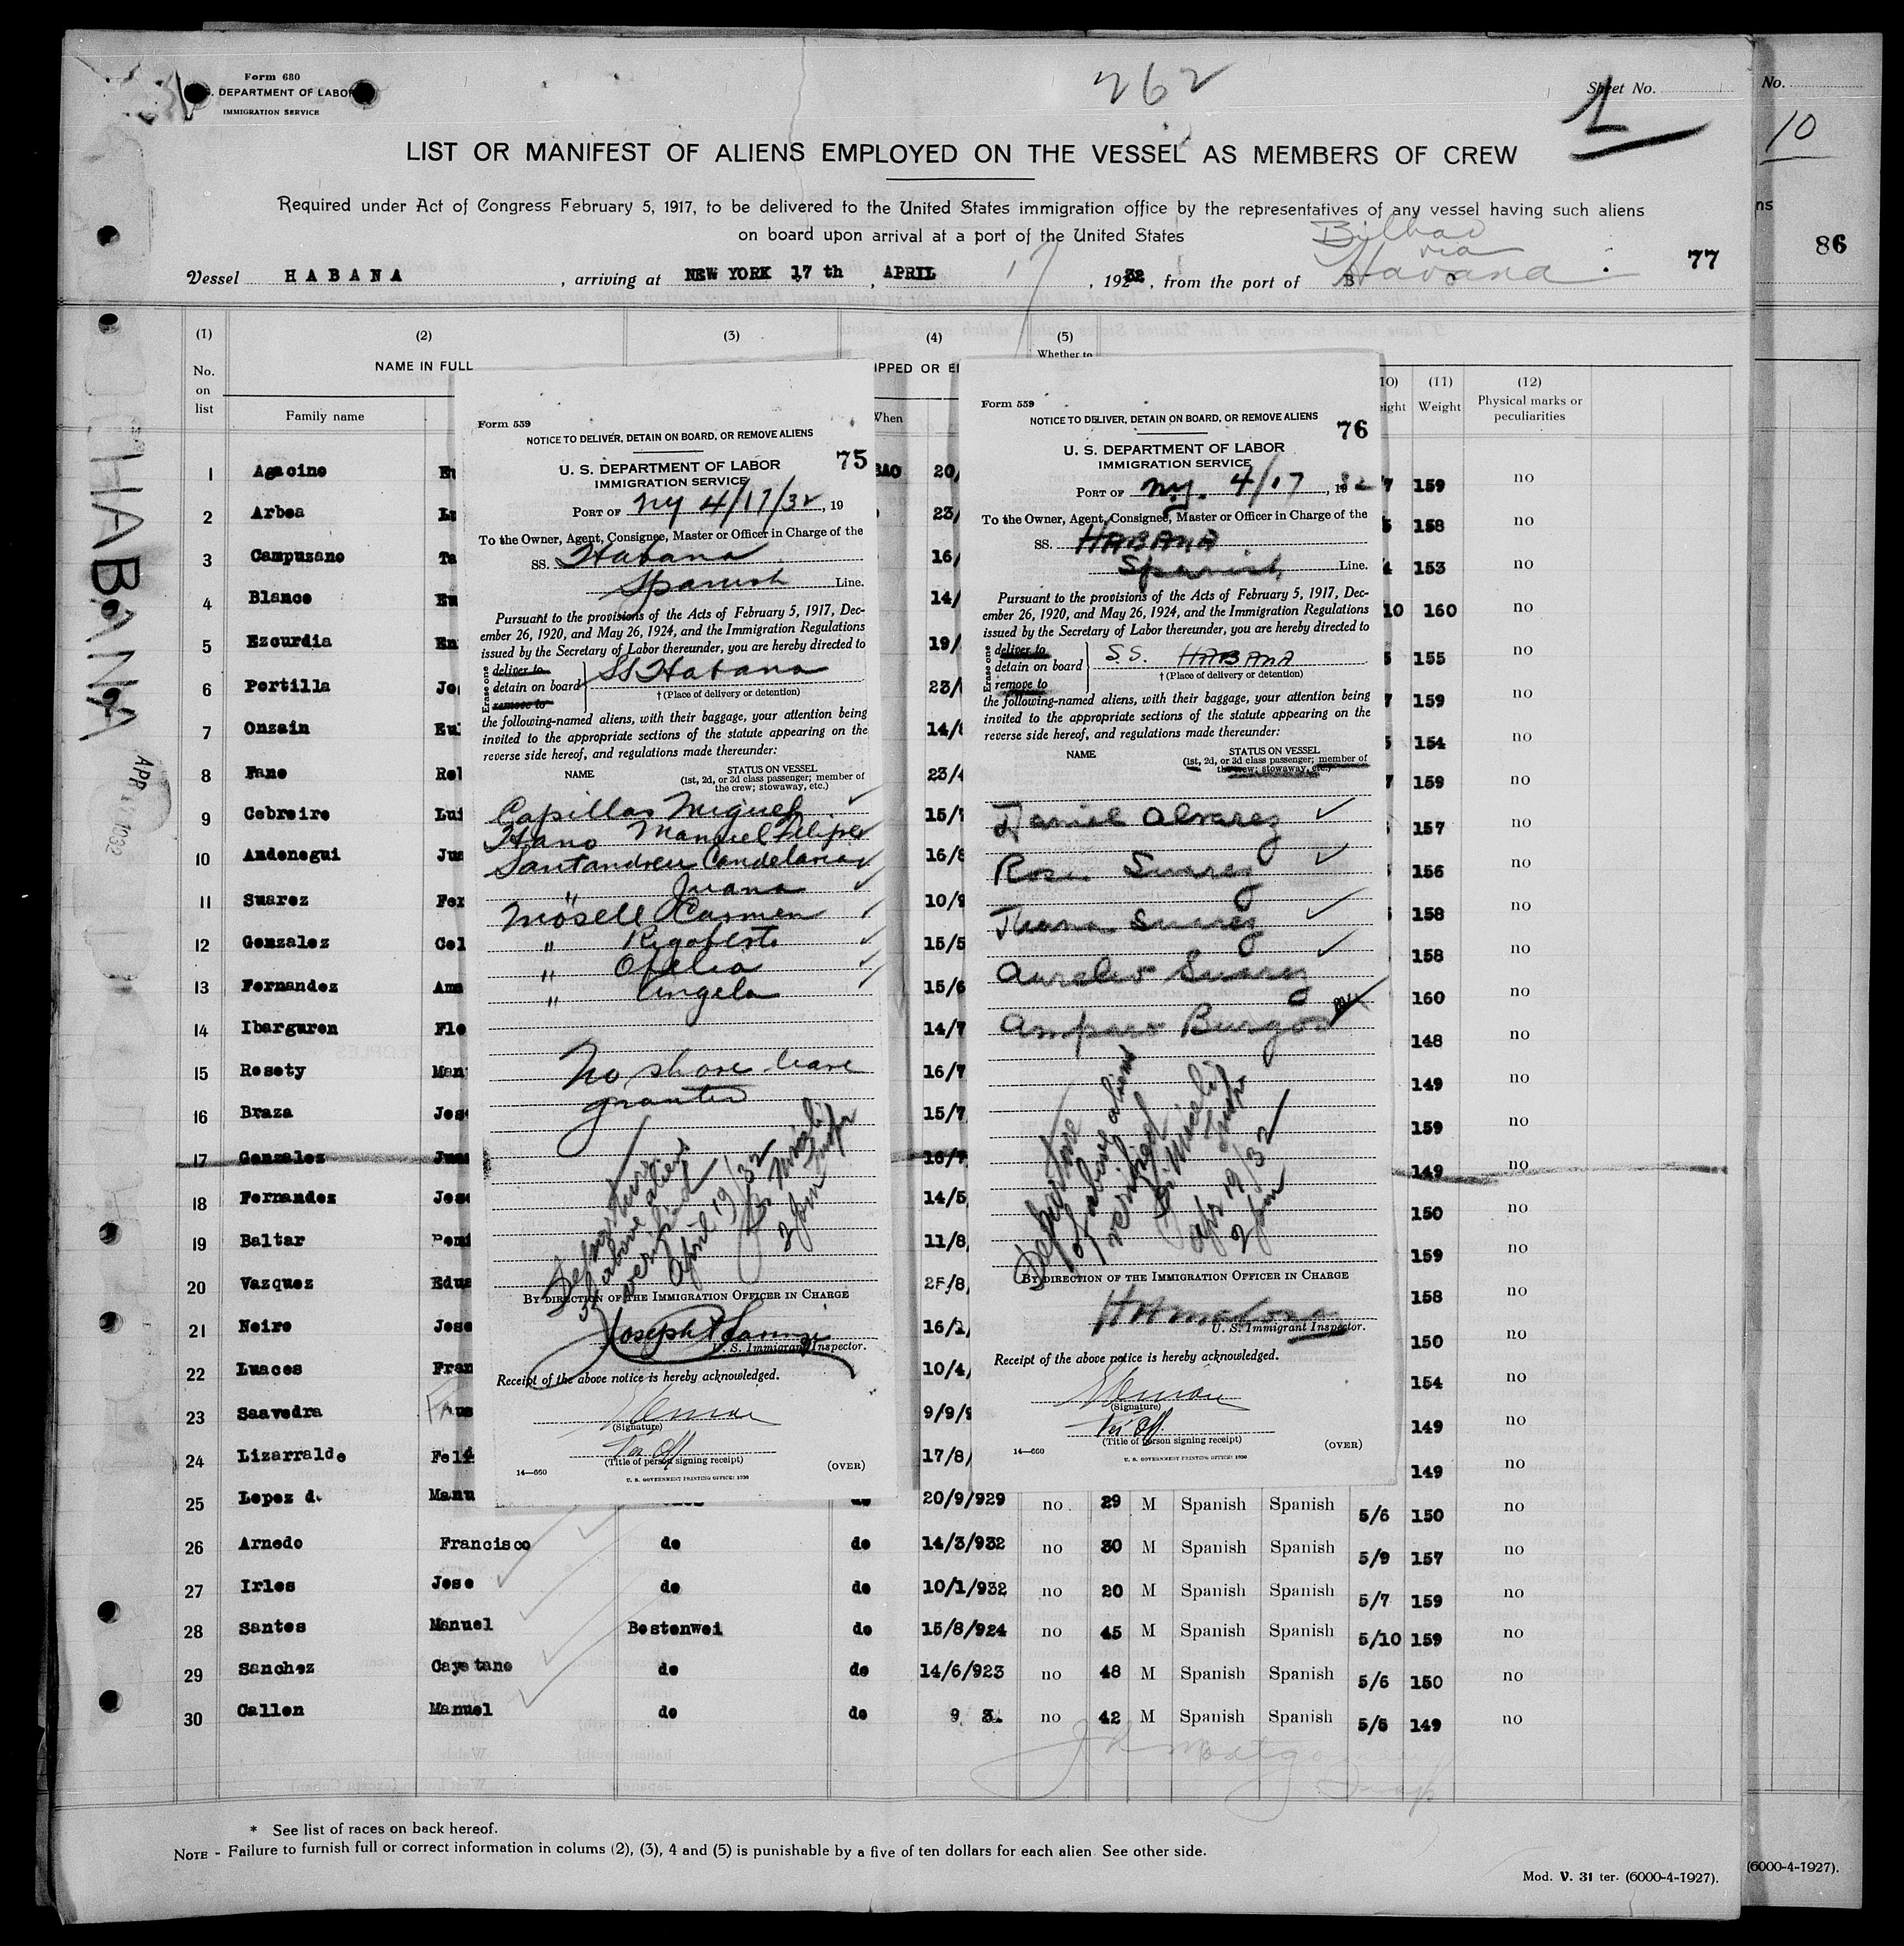 Form 680
S. DEPARTMENT OF LABOR
IMMIGRATION SERVICE
262
Sheet No.
1
No.
10
LIST OR MANIFEST OF ALIENS EMPLOYED ON THE VESSEL AS MEMBERS OF CREW
Required under Act of Congress February 5, 1917, to be delivered to the United States immigration office by the representatives of any vessel having such aliens
on board upon arrival at a port of the United States
Bilbao
via
77
86
Vessel HABANA, arriving at NEW YORK 17 th, APRIL 17, 1932, from the port of Havana
(1) (2) (3) (4) (5)
Whether to
No. on list
NAME IN FULL
IPPED OR E
Family name
When
(10) (11) (12)
eight Weight Physical marks or peculiarities
HABANA
APR 1932
1 Agacino Eu BAO 20/ 7 159 no
2 Arbea Lu 23/ 5 158 no
3 Campuzano Ta 16/ 4 153 no
4 Blanco Eu 14/ 10 160 no
5 Ezcurdia En 19/ 5 155 no
6 Portilla Jo 23/ 7 159 no
7 Onzain Eul 14/8 5 154 no
8 Fano Rol 23/4 7 159 no
9 Cebreiro Lui 15/ 157 no
10 Andonegui Jua 16/8 156 no
11 Suarez Fer 10/9 158 no
12 Gonzalez Cel 15/5 158 no
13 Fernandez Ama 15/6 160 no
14 Ibarguren Flo 14/7 148 no
15 Rosety Man 16/7 149 no
16 Braza Jos 15/7 159 no
17 Gonzalez Jua 16/7 149 no
18 Fernandez Jose 14/5 150 no
19 Baltar 11/8, 159 no
20 Vazquez Edua 25/8, 158 no
21 Neiro Jose 16/1, 150 no
22 Luaces Fran 10/4, 154 no
23 Saavedra Faus 9/9/9 149 no
24 Lizarralde Feli 17/8, 149 no
25 Lopez d. Manu 20/9/929 no 29 M Spanish Spanish 5/6 150 no
26 Arnedo Francisco do do 14/3/932 no 30 M Spanish Spanish 5/9 157 no
27 Irles Jose do do 10/1/932 no 20 M Spanish Spanish 5/7 159 no
28 Santos Manuel Bestonwei do 15/8/924 no 45 M Spanish Spanish 5/10 159 no
29 Sanchez Cayetano do do 14/6/923 no 48 M Spanish Spanish 5/6 150 no
30 Callon Manuel do do 9 3. no 42 M Spanish Spanish 5/5 149 no
J R Montgomery
Insp
Form 559
NOTICE TO DELIVER, DETAIN ON BOARD, OR REMOVE ALIENS
75
U. S. DEPARTMENT OF LABOR
IMMIGRATION SERVICE
PORT OF NY 4/17/32, 19
To the Owner, Agent, Consignee, Master or Officer in Charge of the
SS. Habana
Spanish Line.
Pursuant to the provisions of the Acts of February 5, 1917, Dec-
ember 26, 1920, and May 26, 1924, and the Immigration Regulations
issued by the Secretary of Labor thereunder, you are hereby directed to
Erase one
deliver to
detain on board SS Habana
remove to
† (Place of delivery or detention)
the following-named aliens, with their baggage, your attention being
invited to the appropriate sections of the statute appearing on the
reverse side hereof, and regulations made thereunder:
NAME STATUS ON VESSEL
(1st, 2d, or 3d class passenger; member of
the crew; stowaway, etc.)
Capillas Miguel ✓
Hano Manuel Felipe ✓
Santandreu Candelaria ✓
" Juana ✓
Mosell Carmen ✓
" Rigoberto ✓
" Ofelia ✓
" Angela ✓
No shore leave
granted
Departure
of above aliens
verified
April 19/32
2 pm
BY DIRECTION OF THE IMMIGRATION OFFICER IN CHARGE
U. S. Immigrant Inspector.
Receipt of the above notice is hereby acknowledged.
(Signature)
(Title of person signing receipt)
14—660
(OVER)
U. S. GOVERNMENT PRINTING OFFICE: 1930
Form 559
NOTICE TO DELIVER, DETAIN ON BOARD, OR REMOVE ALIENS
76
U. S. DEPARTMENT OF LABOR
IMMIGRATION SERVICE
PORT OF N.Y. 4/17, 1932
To the Owner, Agent, Consignee, Master or Officer in Charge of the
SS. HABANA
Spanish Line.
Pursuant to the provisions of the Acts of February 5, 1917, Dec-
ember 26, 1920, and May 26, 1924, and the Immigration Regulations
issued by the Secretary of Labor thereunder, you are hereby directed to
Erase one
deliver to
detain on board S.S. HABANA
remove to
† (Place of delivery or detention)
the following-named aliens, with their baggage, your attention being
invited to the appropriate sections of the statute appearing on the
reverse side hereof, and regulations made thereunder:
NAME STATUS ON VESSEL
(1st, 2d, or 3d class passenger; member of
the crew; stowaway, etc.)
Daniel Alvarez ✓
Rosa Suarez ✓
Juana Suarez ✓
Aurelio Suarez ✓
Amparo Burgos
Departure
of above aliens
verified
Apr 19/32
2 pm
BY DIRECTION OF THE IMMIGRATION OFFICER IN CHARGE
U. S. Immigrant Inspector.
Receipt of the above notice is hereby acknowledged.
(Signature)
(Title of person signing receipt)
14—660
(OVER)
U. S. GOVERNMENT PRINTING OFFICE: 1930
* See list of races on back hereof.
NOTE - Failure to furnish full or correct information in colums (2), (3), 4 and (5) is punishable by a five of ten dollars for each alien. See other side.
Mod. V. 31 ter. (6000-4-1927).
(6000-4-1927).